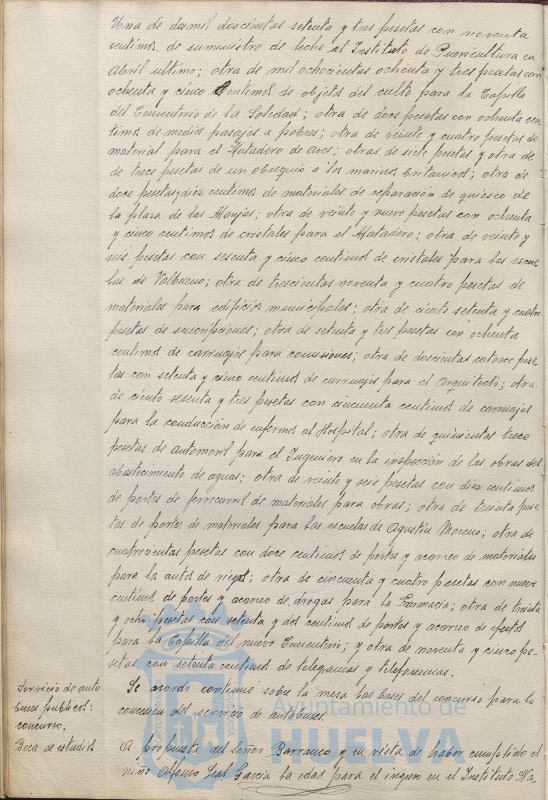 Una de dosmil doscientas setenta y tres pesetas con noventa
centimos, de suministro de leche al Instituto de Puericultura en
Abril ultimo; otra de mil ochocientas ochenta y tres pesetas con
ochenta y cinco centimos de objetos del culto para la Capilla
del Cementerio de la Soledad; otra de doce pesetas con ochenta cen
timos de medios pasajes a pobres; otra de veinte y cuatro pesetas de
material para el Matadero de aves; otras de siete pesetas y otra de
de trece pesetas de un obsequio a los marinos britanicos; otra de
doce pesetas y diez centimos de materiales de reparación de quiosco de
la plaza de las Monjas; otra de veinte y nueve pesetas con ochenta
y cinco centimos de cristales para el Matadero; otra de veinte y
seis pesetas con sesenta y cinco centimos de cristales para las escue
las de Valbueno; otra de trescientas noventa y cuatro pesetas de
materiales para edificios municipales; otra de ciento setenta y cuatro
pesetas de suscripciones; otra de setenta y tres pesetas con ochenta
centimos de carruajes para comisiones; otra de doscientas catorce pese
tas con setenta y cinco centimos de carruajes para el Arquitecto; otra
de ciento sesenta y tres pesetas con cincuenta centimos de carruajes
para la conducción de enfermos al Hospital; otra de quinientas trece
pesetas de automovil para el Ingeniero en la inspección de las obras del
abastecimiento de aguas; otra de veinte y seis pesetas con diez centimos
de portes de ferrocarril de materiales para obras; otra de treinta pese
tas de portes de materiales para las escuelas de Agustin Moreno; otra de
cuatrocientas pesetas con doce centimos de portes y acarreo de materiales
para los autos de riego; otra de cincuenta y cuatro pesetas con nueve
centimos de portes y acarreo de drogas para la Farmacia; otra de treinta
y ocho pesetas con setenta y dos centimos de portes y acarreo de efectos
para la Capilla del nuevo Cementerio; y otra de noventa y cinco pe-
setas con setenta centimos de telegramas y telefonemas.
Servicio de auto
buses publicos:
concurso.
Se acordo continue sobre la mesa las bases del concurso para la
concesion del servicio de autobuses.
Beca de estudios
A propuesta del Señor Barranco y en vista de haber cumplido el
niño Alfonso Leal Garcia la edad para el ingreso en el Instituto Na.
Ayuntamiento de
HUELVA